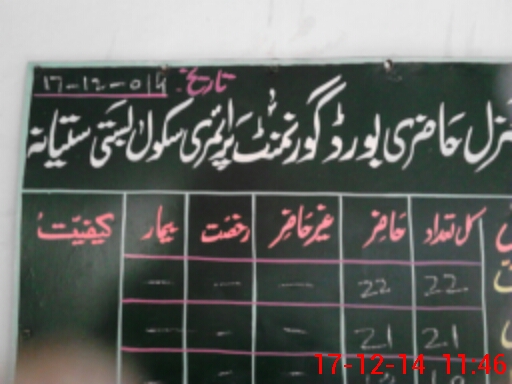 تاریخ: 17-12-014
جنرل حاضری بورڈ گورنمنٹ پرائمری سکول بستی ستیانہ
کل تعداد حاضر غیر حاضر رخصت بیمار کیفیت
22 22 — - —
21 21 - - —
17-12-14 11:46